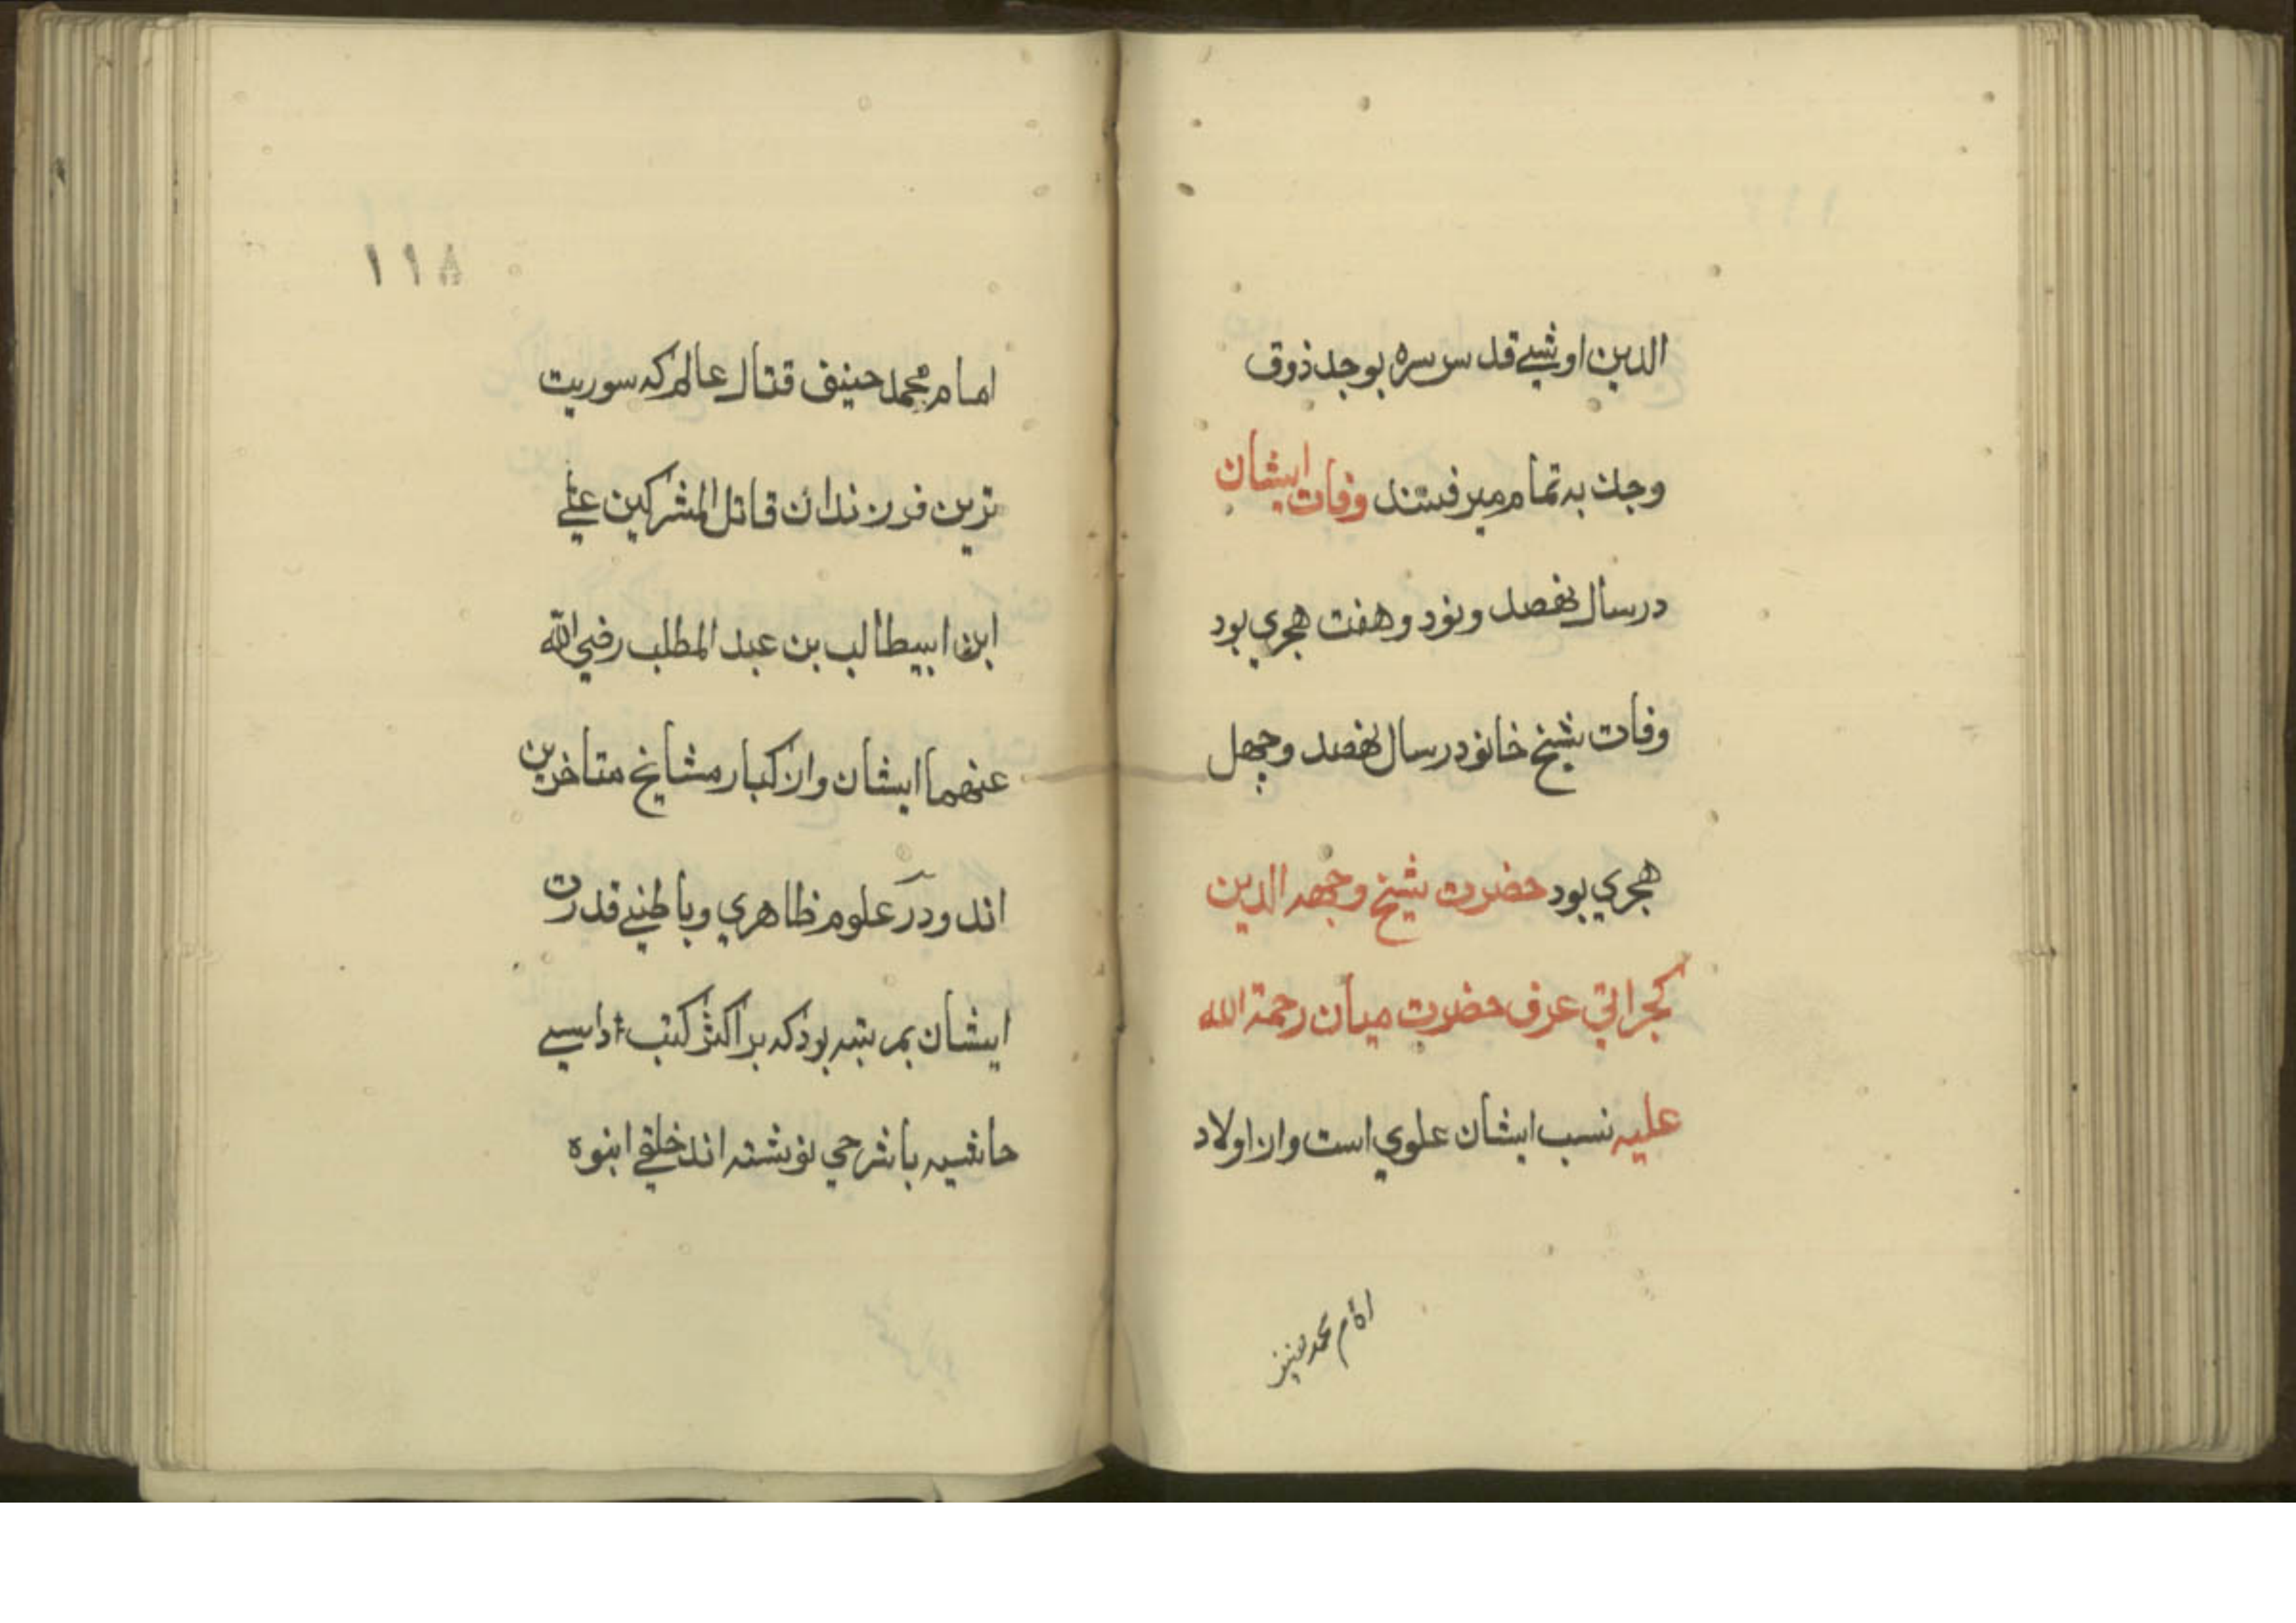 الدین اوشیي قدس سره بوجد ذوق
وجد به تمام میرفتند وفات ایشان
درسال نهصد ونود وهفت هجري بود
وفات شیخ خانو درسال نهصد وچهل
هجري بود حضرت شیخ وجهه الدین
کجراتي عرف حضرت میان رحمة الله
علیه نسب ایشان علوي است واز اولاد
امام محمد حنیف
۱۱۸
امام محمد حنیف قتال عالم که سوریت
ترین فرزندان قاتل المشرکین علي
ابن ابیطالب بن عبد المطلب رضي الله
عنهما ایشان واز کبار مشایخ متاخرین
اند ودر علوم ظاهري وباطني قدرت
ایشان بمرتبه بود که بر اکثر کتب
حاشیه یا شرحي نوشته اند خلقي انبوه